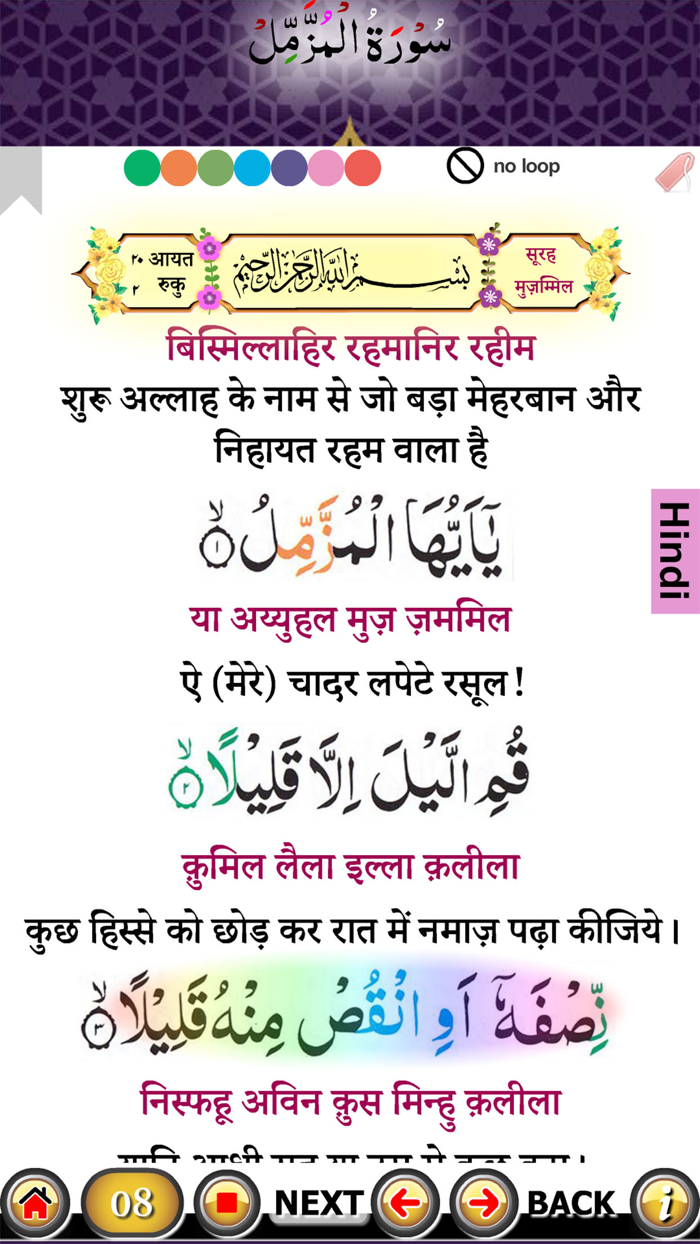 سُوْرَةُ الْمُزَّمِّلْ
no loop
२० आयत
२ रुकु
بِسْمِ اللّٰهِ الرَّحْمٰنِ الرَّحِيْمِ
सूरह
मुज़म्मिल
बिस्मिल्लाहिर रहमानिर रहीम
शुरू अल्लाह के नाम से जो बड़ा मेहरबान और
निहायत रहम वाला है
يٰۤاَيُّهَا الْمُزَّمِّلُ ۙ‏﴿۱﴾
Hindi
या अय्युहल मुज़ ज़ममिल
ऐ (मेरे) चादर लपेटे रसूल!
قُمِ الَّيْلَ اِلَّا قَلِيْلًا ۙ‏﴿۲﴾
क़ुमिल लैला इल्ला क़लीला
कुछ हिस्से को छोड़ कर रात में नमाज़ पढ़ा कीजिये।
نِّصْفَهٗۤ اَوِ انْقُصْ مِنْهُ قَلِيْلًا ۙ‏﴿۳﴾
निस्फहू अविन क़ुस मिन्हु क़लीला
08
NEXT
BACK
i